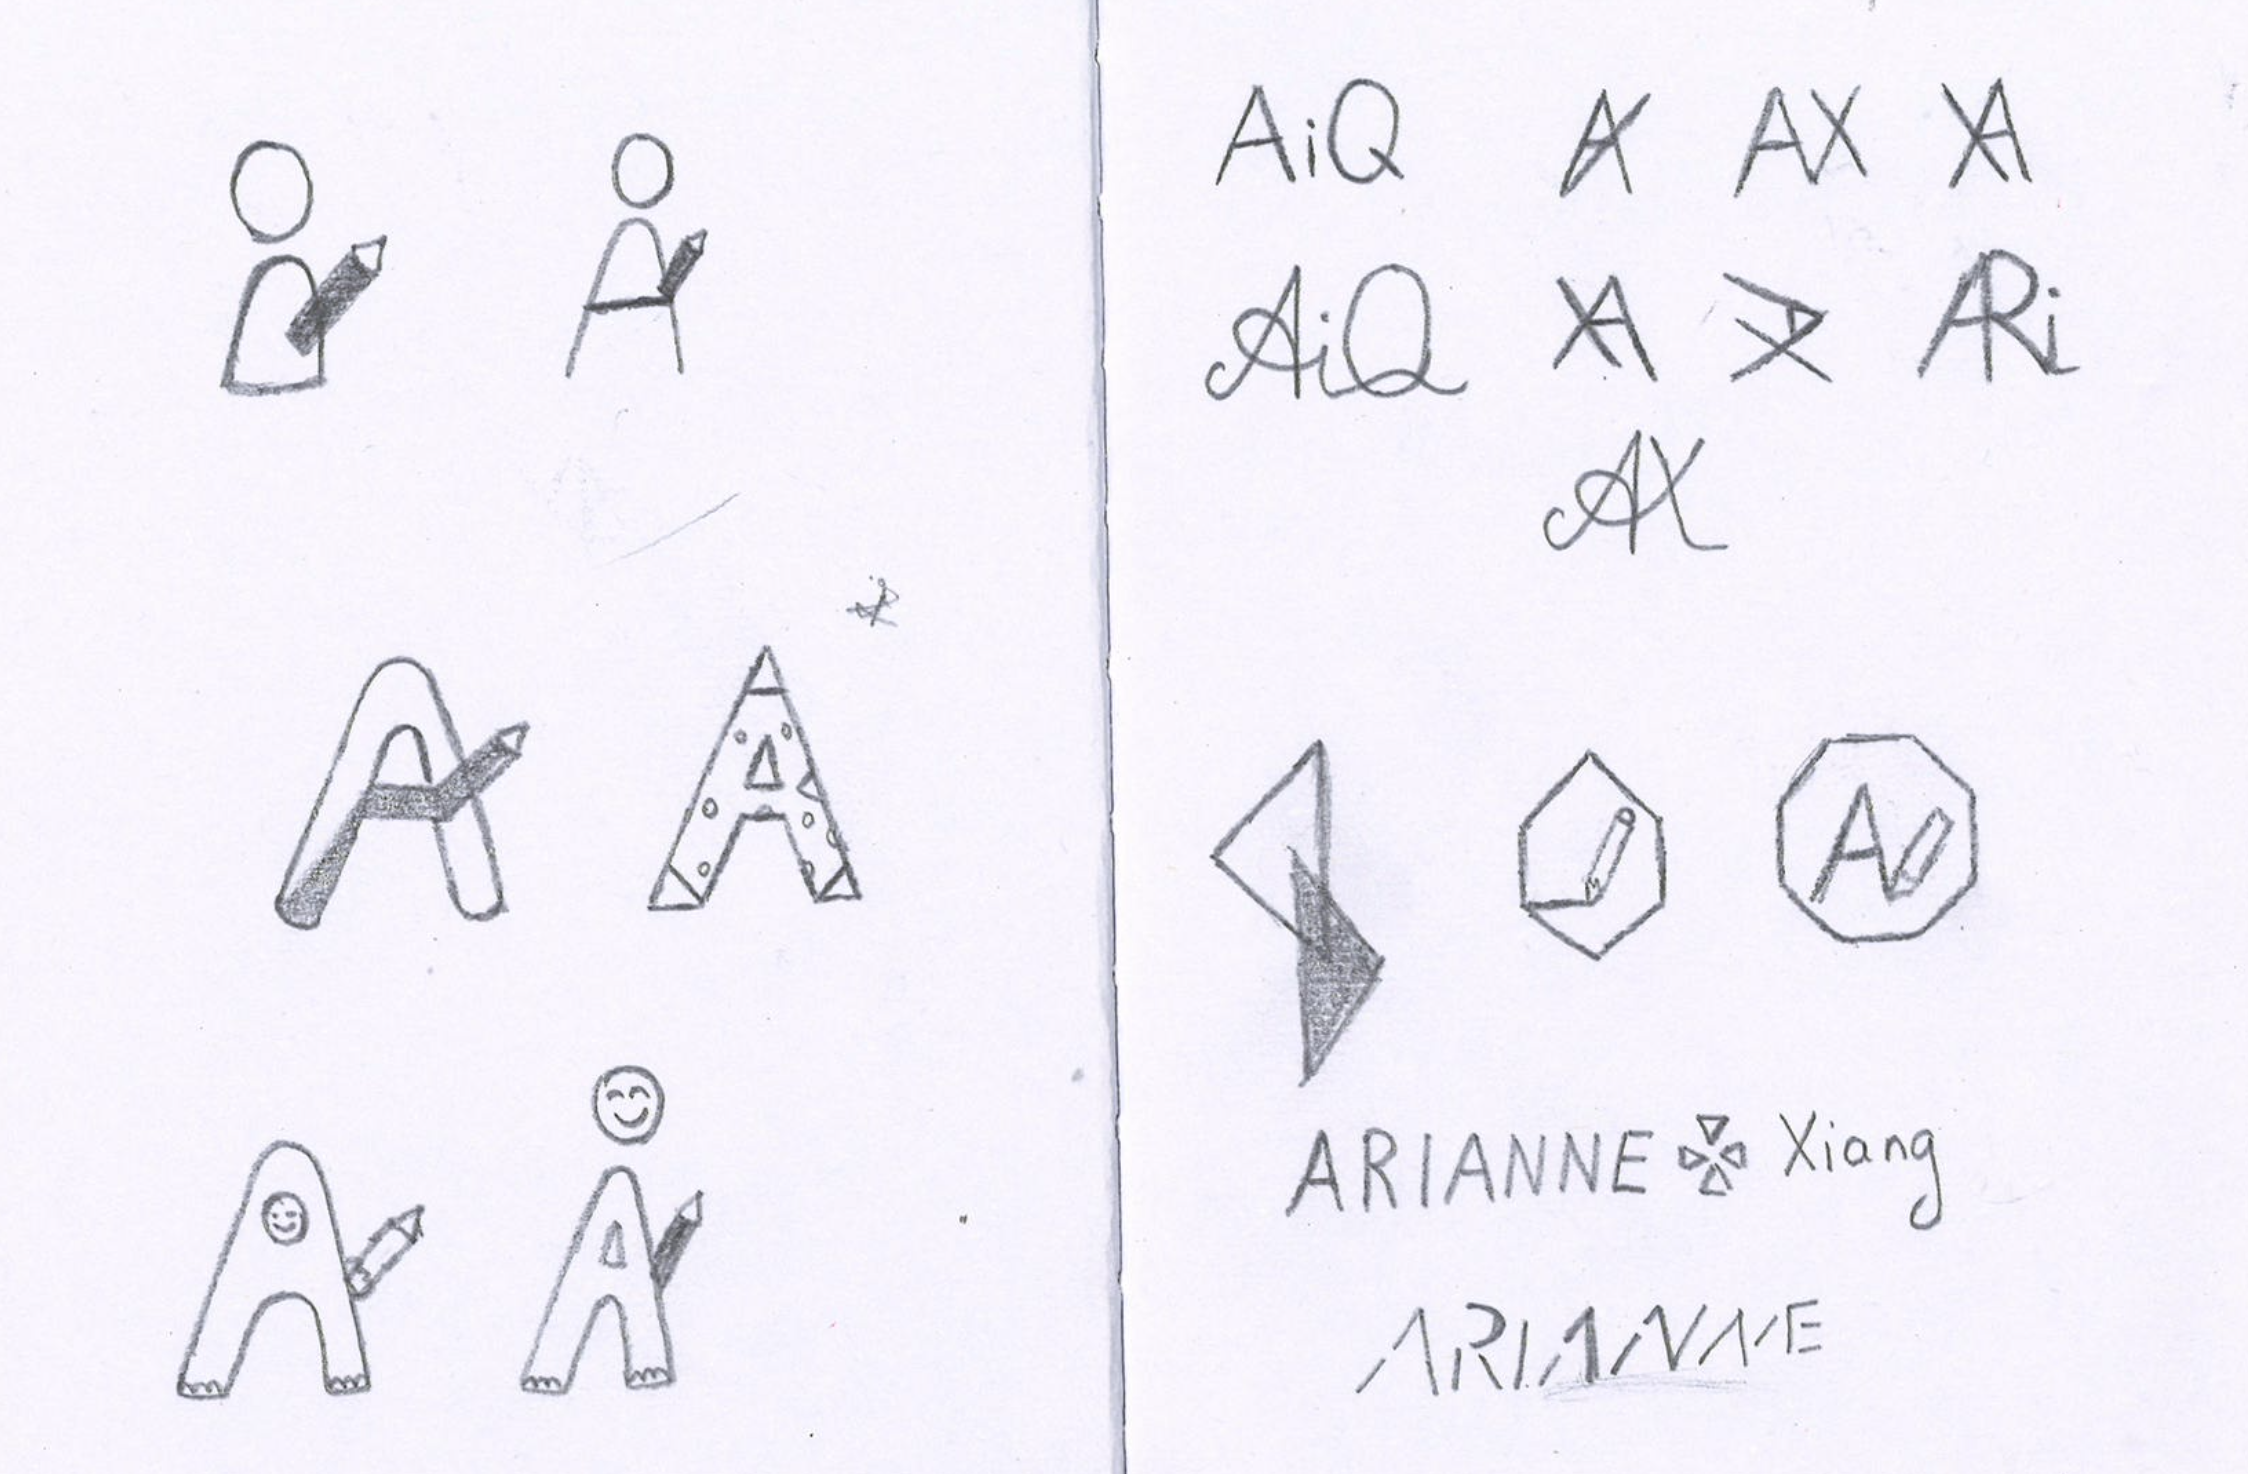 A A
A
A
AiQ AX AX XA
AiQ XA ARi
AX
A
ARIANNE Xiang
ARIANNE